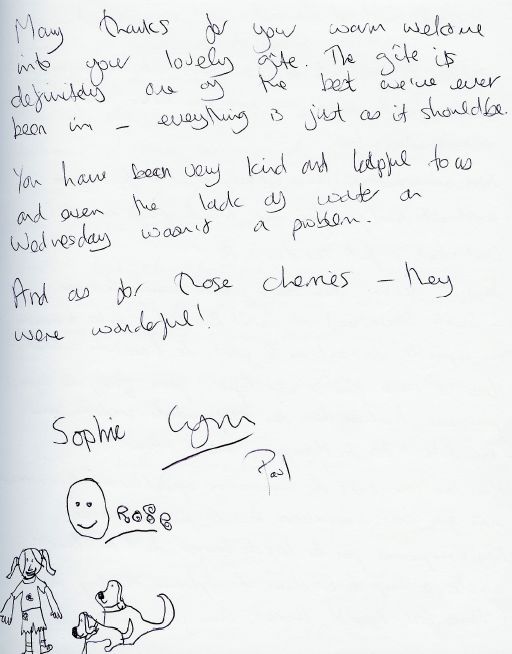 Many thanks for your warm welcome
into your lovely gîte. The gîte is
definitely one of the best we've ever
been in – everything is just as it should be.
You have been very kind and helpful to us
and even the lack of water on
Wednesday wasn't a problem.
And as for those cherries – they
were wonderful!
Sophie Lynn
Paul
ROSE